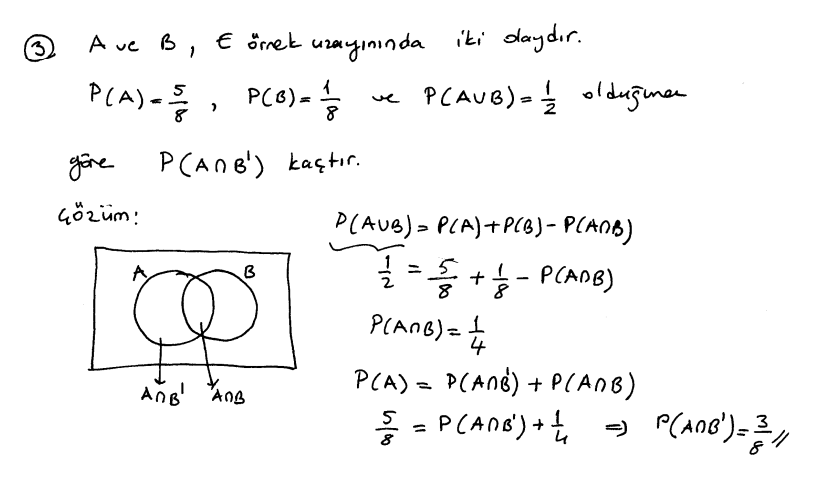 ③ A ve B, E örnek uzayınında iki olaydır.
P(A) = 5/8, P(B) = 1/8 ve P(A∪B) = 1/2 olduğuna
göre P(A∩B') kaçtır.
Çözüm:
A B
A∩B' A∩B
P(A∪B) = P(A)+P(B) - P(A∩B)
1/2 = 5/8 + 1/8 - P(A∩B)
P(A∩B) = 1/4
P(A) = P(A∩B') + P(A∩B)
5/8 = P(A∩B') + 1/4 ⇒ P(A∩B') = 3/8 //